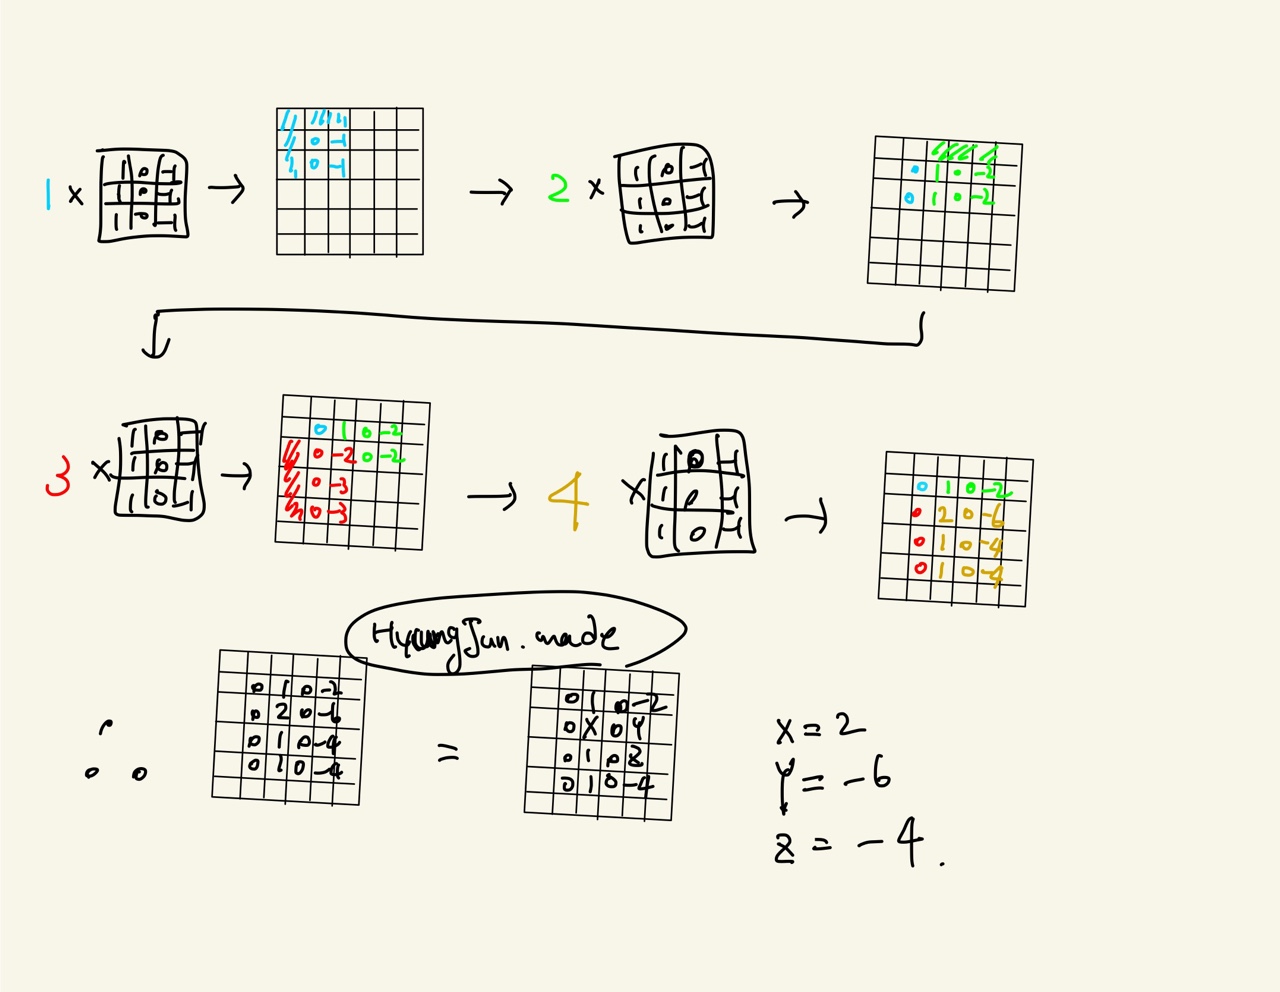 1 ×
1 0 -1
1 0 -1
1 0 -1
→
0 -1
0 -1
→ 2 ×
1 0 -1
1 0 -1
1 0 -1
→
0 1 0 -2
0 1 0 -2
3 ×
1 0 -1
1 0 -1
1 0 -1
→
0 1 0 -2
0 -2 0 -2
0 -3
0 -3
→ 4 ×
1 0 -1
1 0 -1
1 0 -1
→
0 1 0 -2
0 2 0 -6
0 1 0 -4
0 1 0 -4
HyungJun.made
∴
0 1 0 -2
0 2 0 -6
0 1 0 -4
0 1 0 -4
=
0 1 0 -2
0 X 0 Y
0 1 0 Z
0 1 0 -4
X = 2
Y = -6
Z = -4.